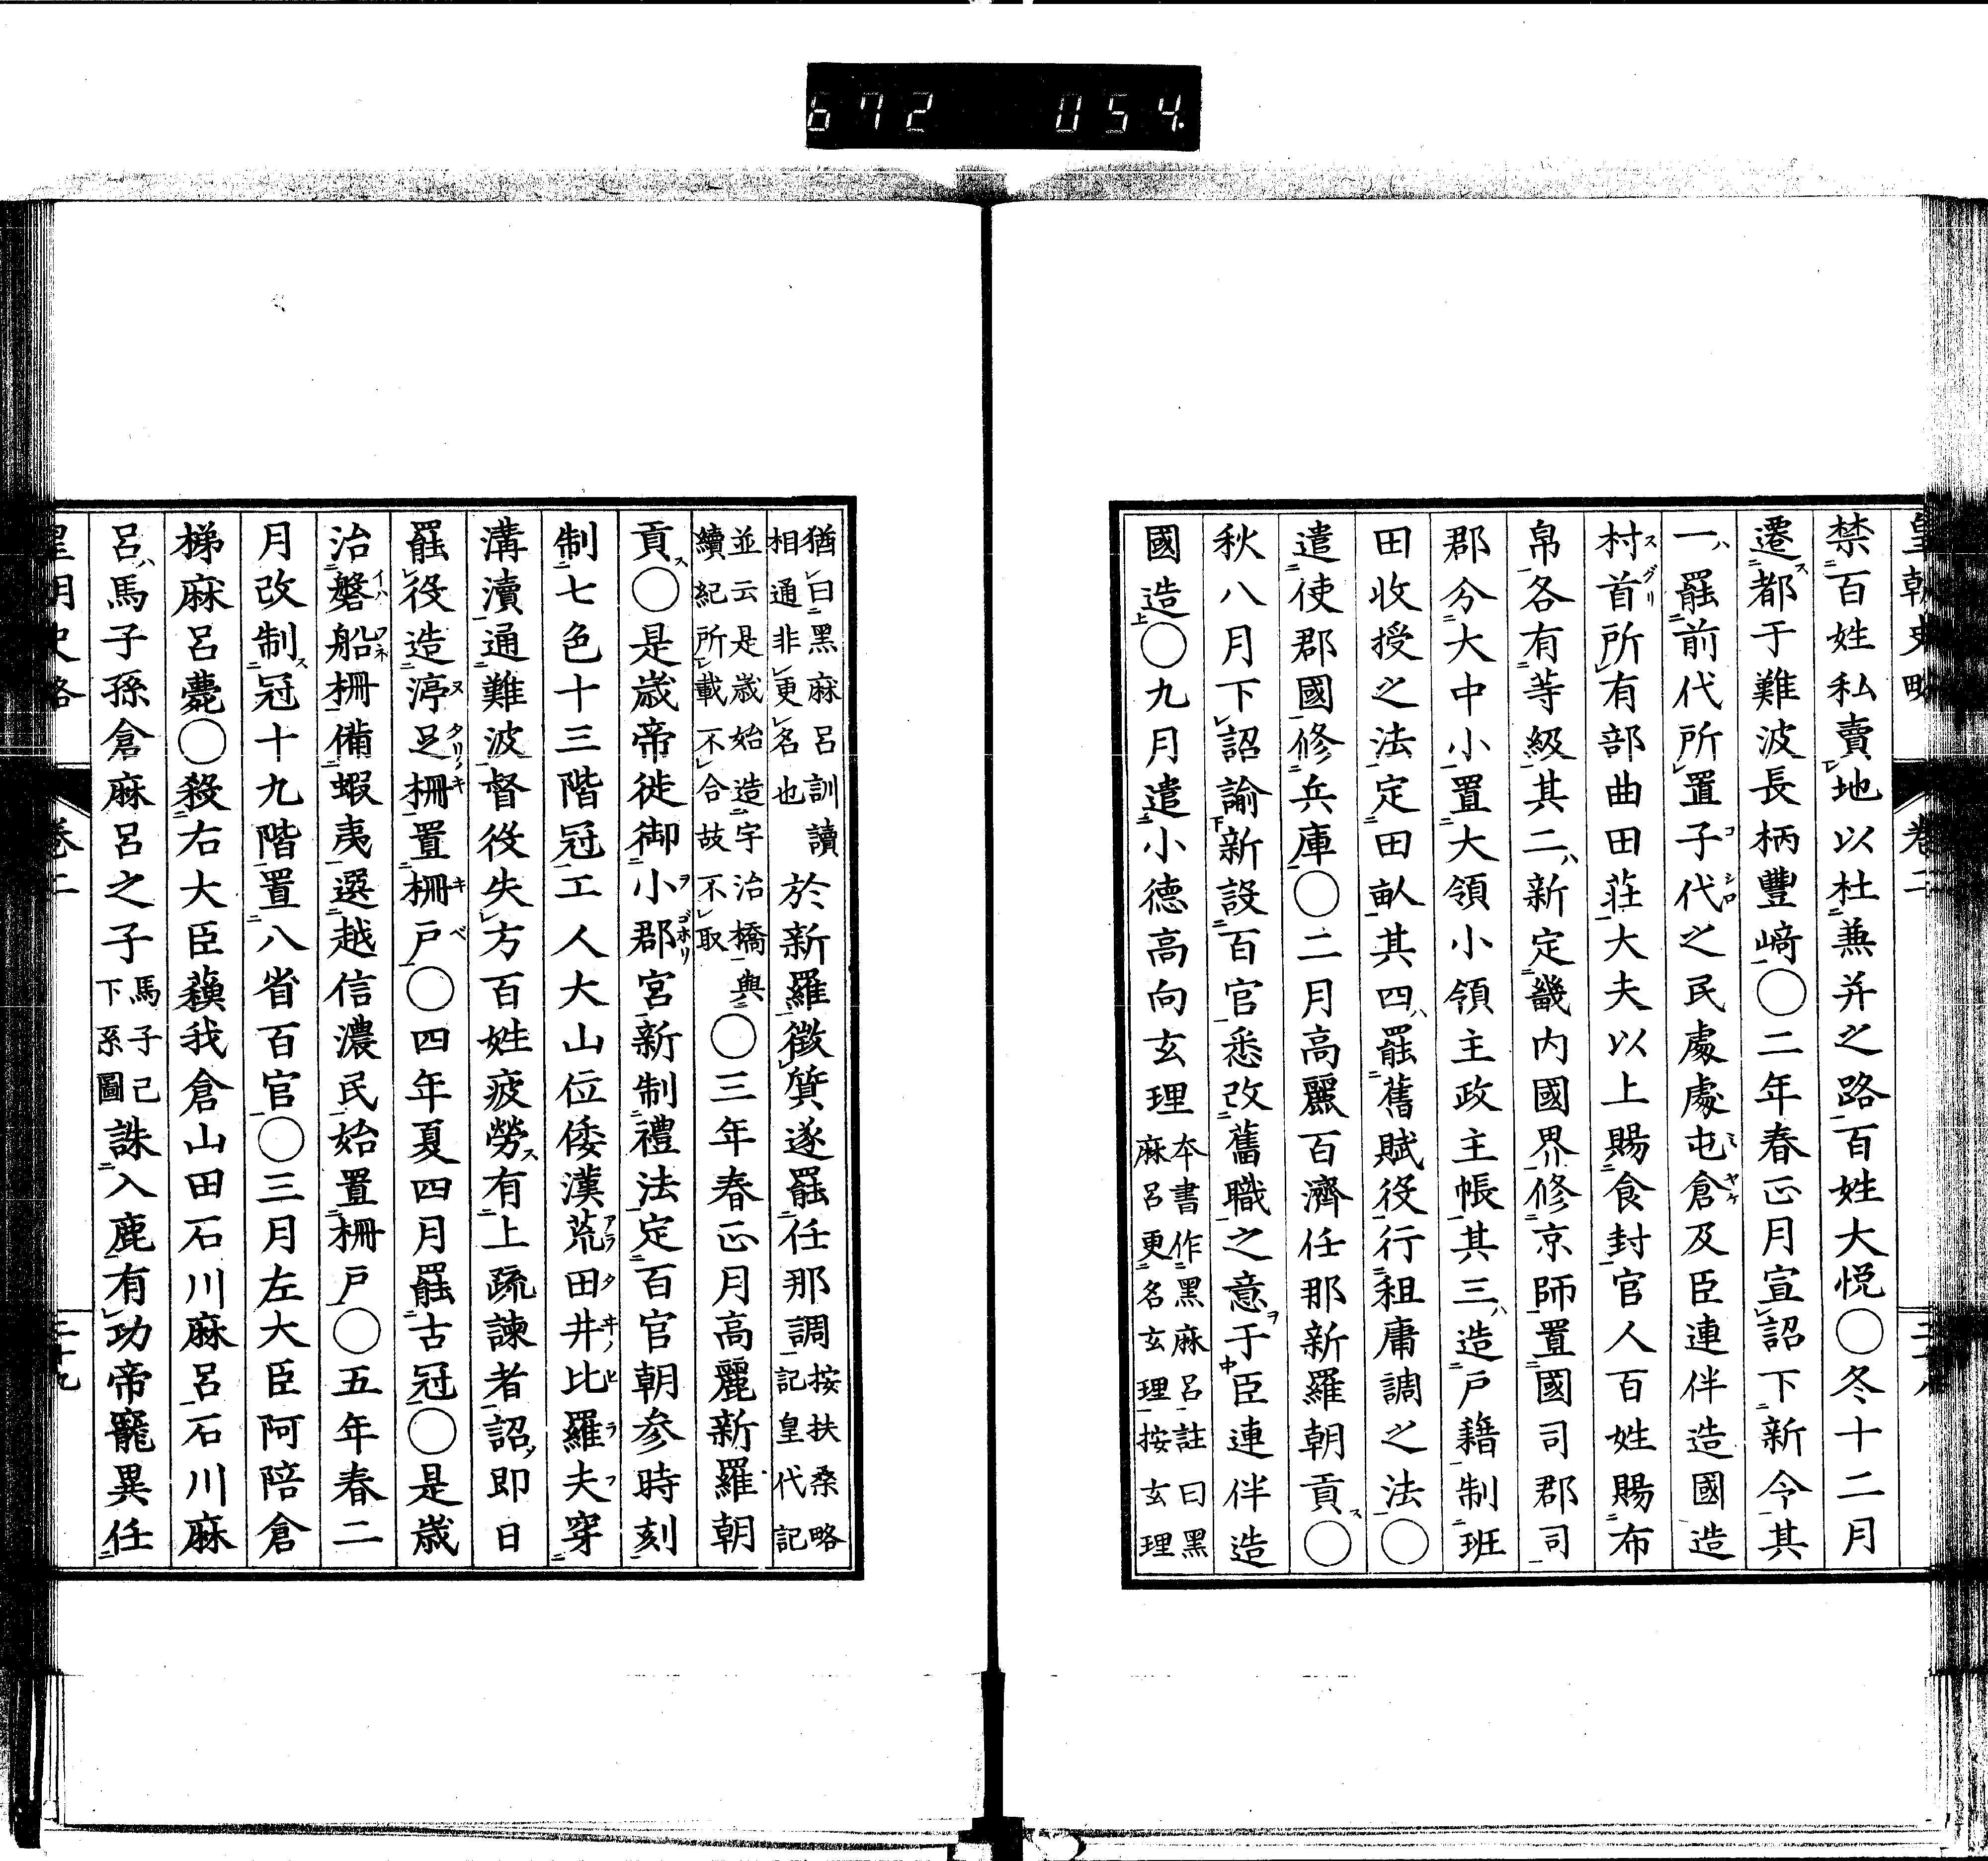 672 054
皇朝史略 卷二
禁百姓私賣地以杜兼并之路百姓大悦○冬十二月
遷都于難波長柄豐﨑○二年春正月宣詔下新令其
一罷前代所置子代之民處處屯倉及臣連伴造國造
村首所有部曲田莊大夫以上賜食封官人百姓賜布
帛各有等級其二新定畿内國界修京師置國司郡司
郡分大中小置大領小領主政主帳其三造戸籍制班
田收授之法定田畒其四罷舊賦役行租庸調之法○
遣使郡國修兵庫○二月高麗百濟任那新羅朝貢○
秋八月下詔諭新設百官悉改舊職之意于臣連伴造
國造○九月遣小德高向玄理本書作黑麻呂註曰黑麻呂更名玄理按玄理
猶曰黑麻呂訓讀相通非更名也於新羅徵質遂罷任那調按扶桑略記皇代記
並云是歳始造宇治橋與續紀所載不合故不取○三年春正月高麗新羅朝
貢○是歳帝徙御小郡宮新制禮法定百官朝参時刻
制七色十三階冠工人大山位倭漢荒田井比羅夫穿
溝瀆通難波督役失方百姓疲勞有上疏諫者詔即日
罷役造渟足柵置柵戸○四年夏四月罷古冠○是歳
治磐船柵備蝦夷選越信濃民始置柵戸○五年春二
月改制冠十九階置八省百官○三月左大臣阿陪倉
梯麻呂薨○殺右大臣蘓我倉山田石川麻呂石川麻
呂馬子孫倉麻呂之子馬子己下系圖誅入鹿有功帝寵異任
卷二 三十九